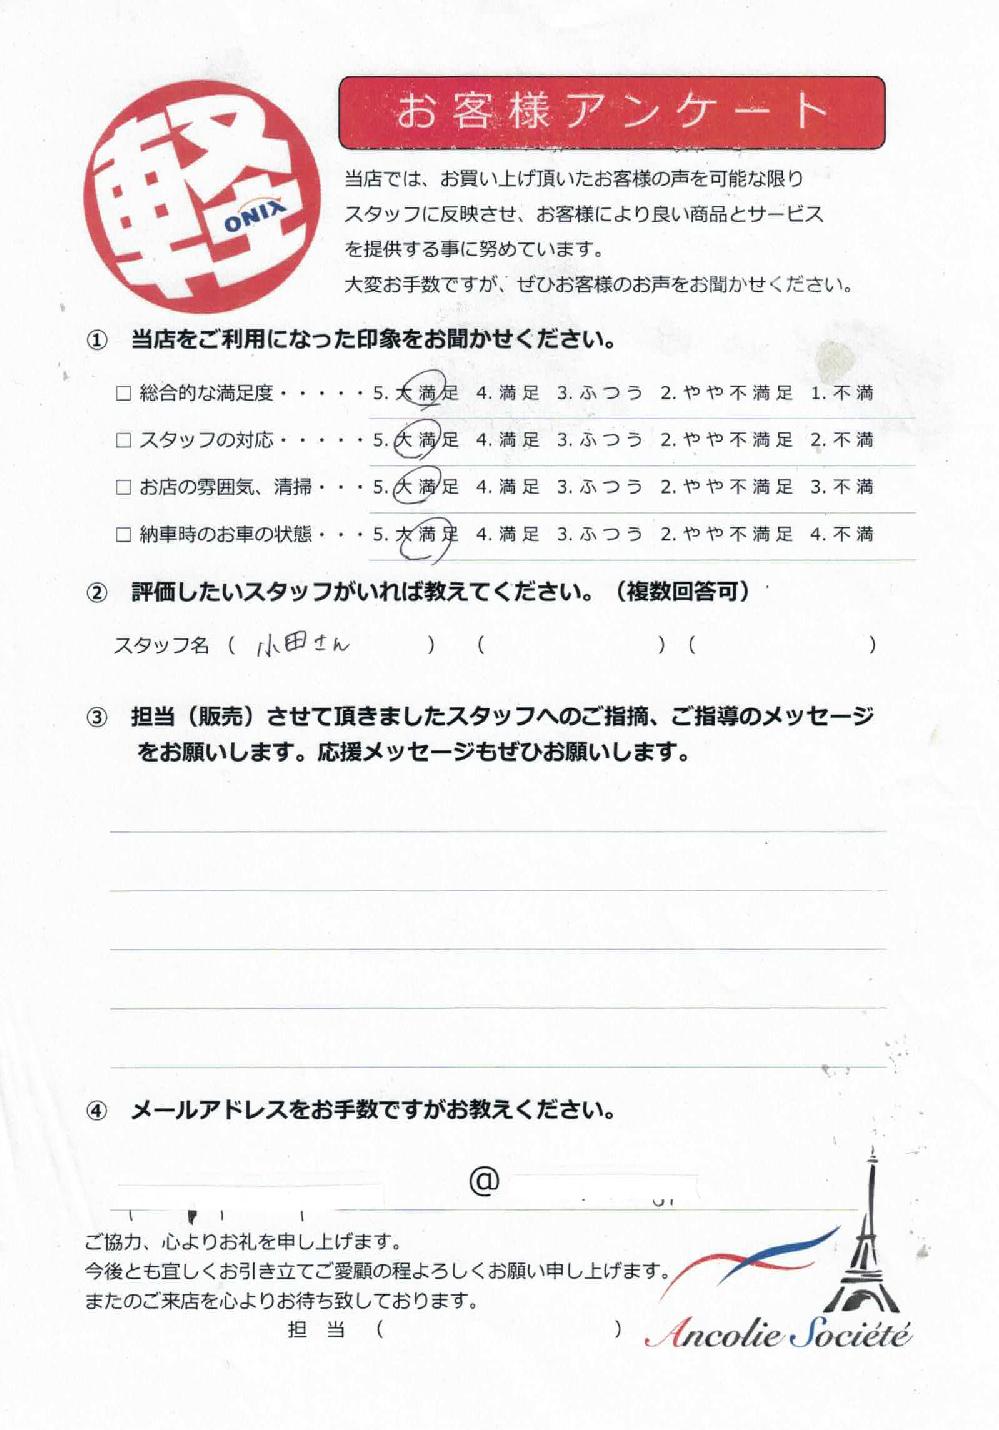 軽
ONIX
お客様アンケート
当店では、お買い上げ頂いたお客様の声を可能な限り
スタッフに反映させ、お客様により良い商品とサービス
を提供する事に努めています。
大変お手数ですが、ぜひお客様のお声をお聞かせください。
① 当店をご利用になった印象をお聞かせください。
□ 総合的な満足度・・・・・5.大満足 4.満足 3.ふつう 2.やや不満足 1.不満
□ スタッフの対応・・・・・5.大満足 4.満足 3.ふつう 2.やや不満足 2.不満
□ お店の雰囲気、清掃・・・5.大満足 4.満足 3.ふつう 2.やや不満足 3.不満
□ 納車時のお車の状態・・・5.大満足 4.満足 3.ふつう 2.やや不満足 4.不満
② 評価したいスタッフがいれば教えてください。（複数回答可）
スタッフ名（ 小田さん ）（ ）（ ）
③ 担当（販売）させて頂きましたスタッフへのご指摘、ご指導のメッセージ
をお願いします。応援メッセージもぜひお願いします。
④ メールアドレスをお手数ですがお教えください。
@
ご協力、心よりお礼を申し上げます。
今後とも宜しくお引き立てご愛顧の程よろしくお願い申し上げます。
またのご来店を心よりお待ち致しております。
担 当 （ ）
Ancolie Société